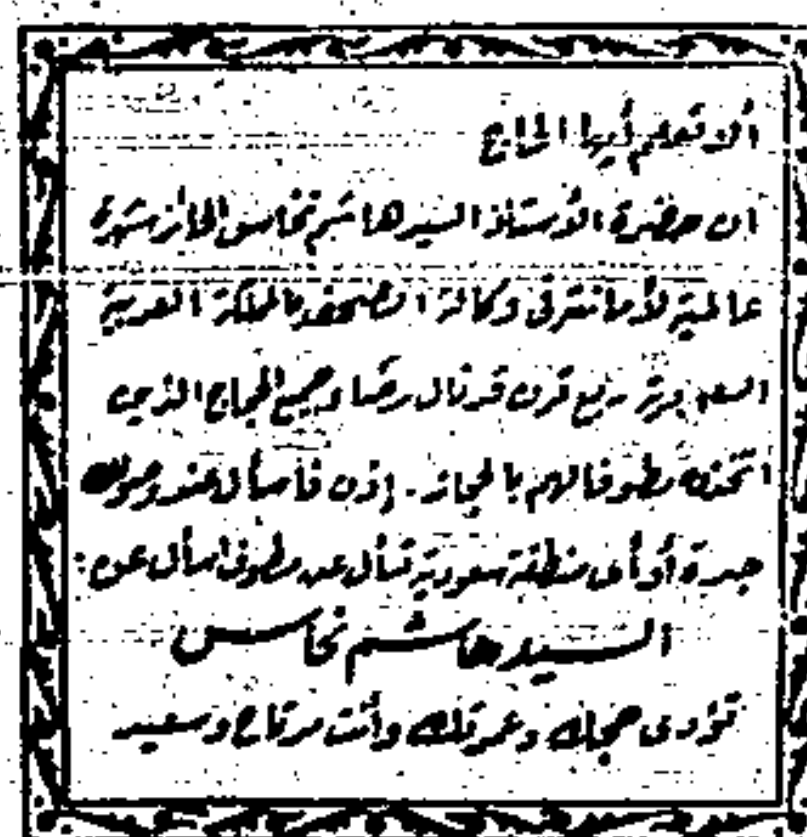 ألا تعلم أيها الحاج
ان حضرة الأستاذ السيد هاشم نحاس الحائز شهرة
عالمية لأمانته في وكالة الصحف بالمملكة العربية
السعودية ربع قرن قد نال رضا جميع الحجاج الذين
اتخذوه مطوفا لهم بالحجاز . إذن فاسأل عند وصولك
جدة أو أى منطقة سعودية تسأل عن مطوف اسأل عن :
السيد هاشم نحاس
تؤدى حجك وعمرتك وأنت مرتاح وسعيد